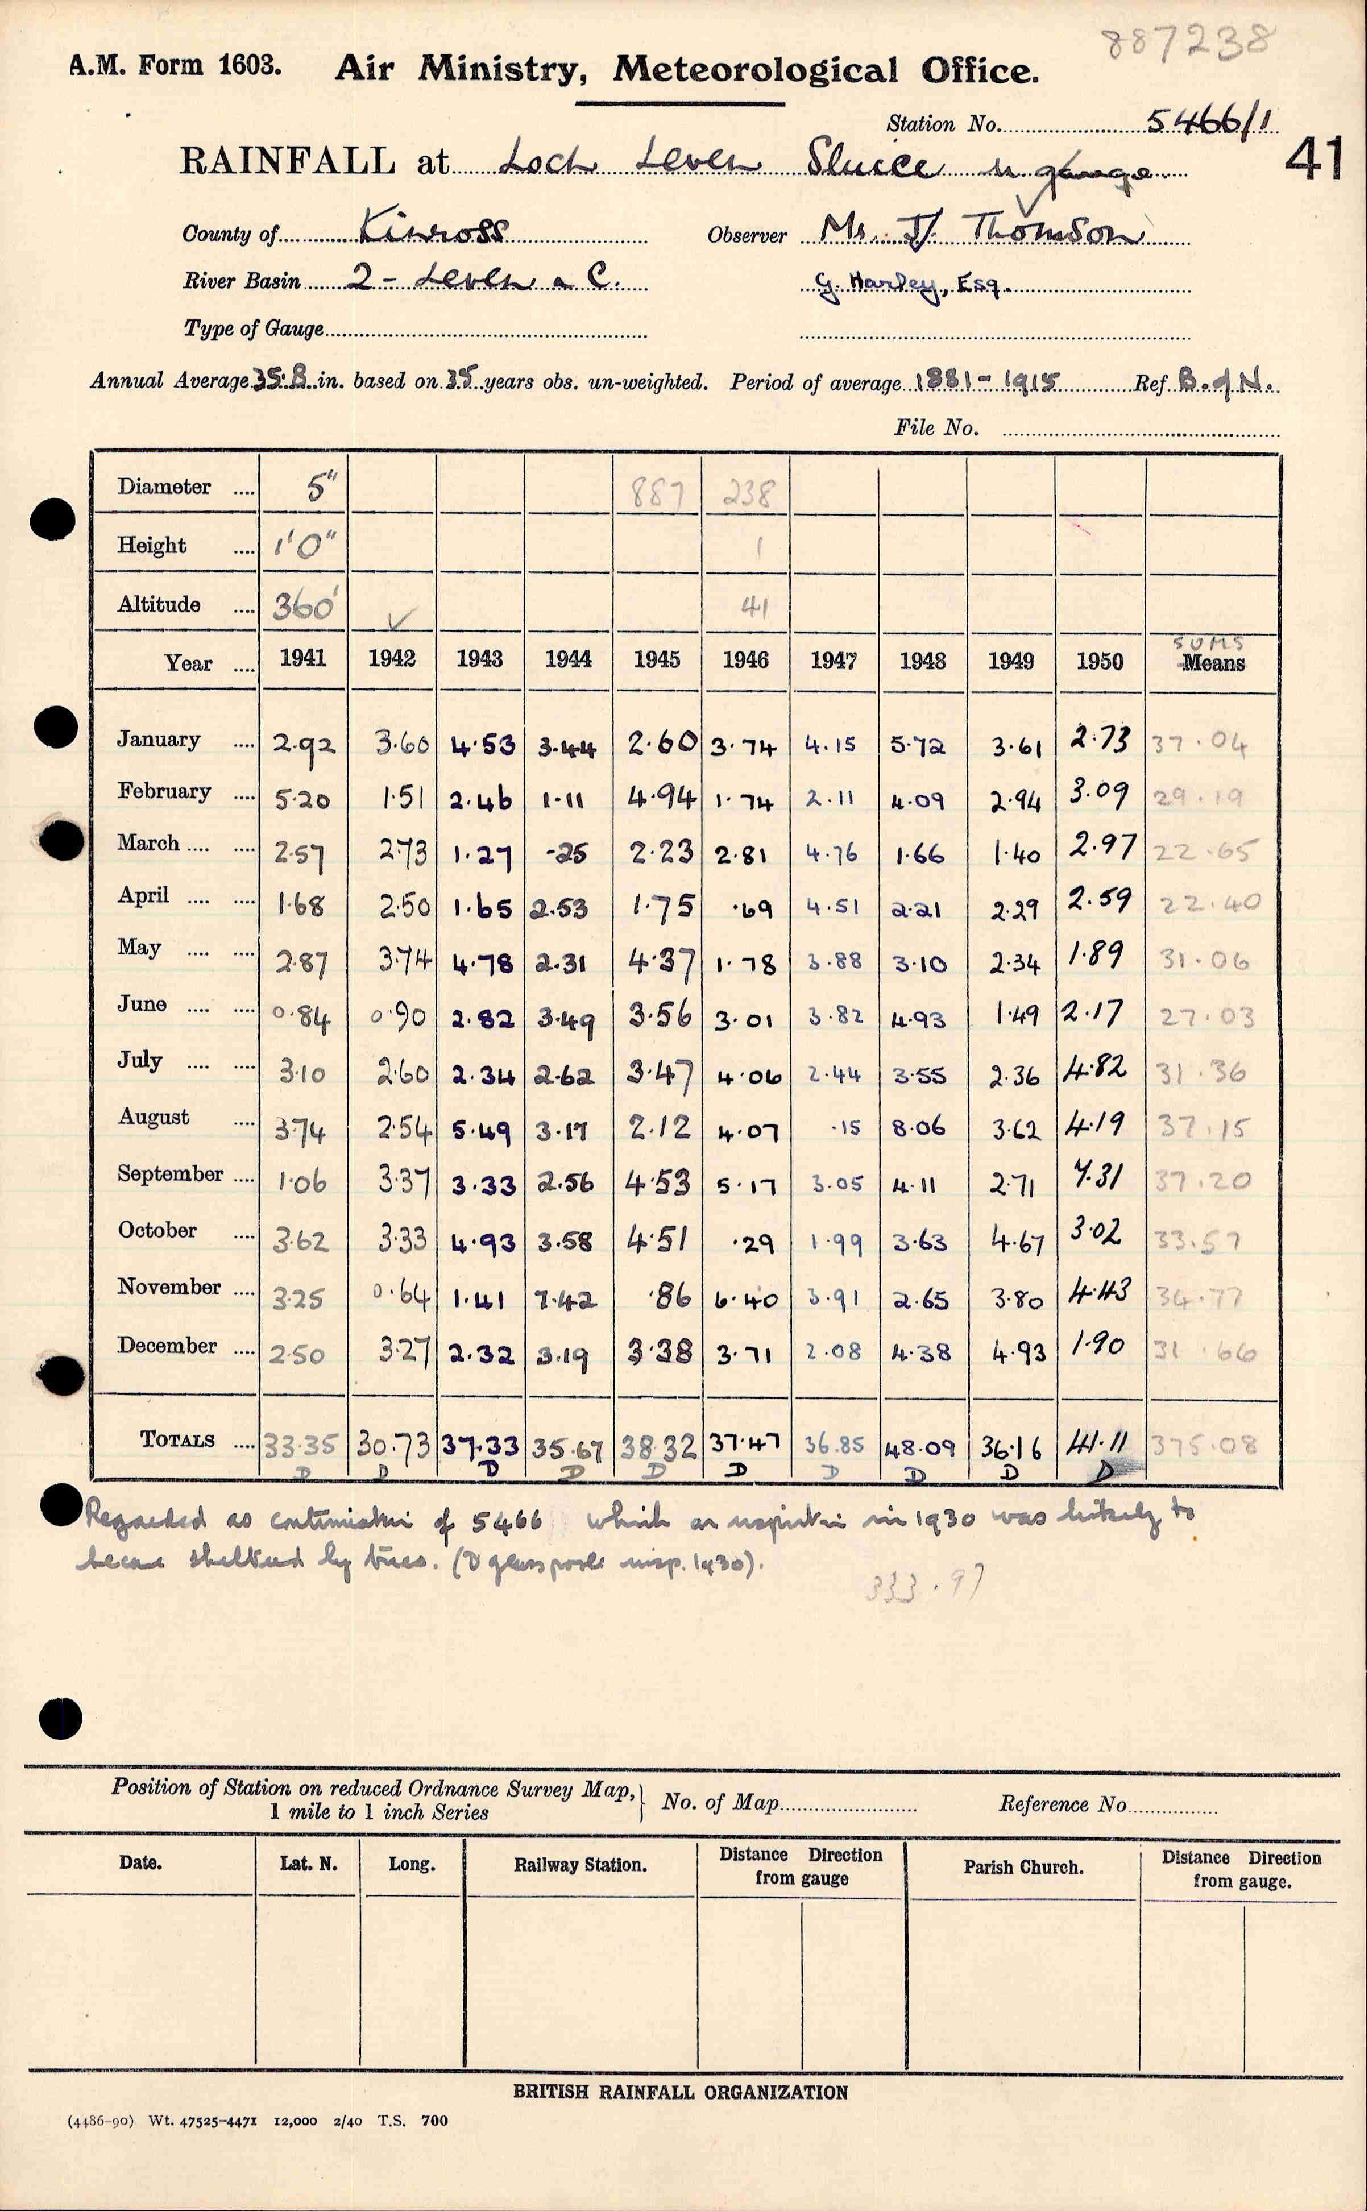 887238
A.M. Form 1603. Air Ministry, Meteorological Office.
Station No. 5466/1
41
RAINFALL at Loch Leven Sluice gauge
County of Kinross Observer Mr. J. Thomson
River Basin 2 - Leven a C. G. Harley, Esq.
Type of Gauge
Annual Average 35.8 in. based on 35 years obs. un-weighted. Period of average 1881-1915 Ref B. of N.
File No.
Diameter .... 5" 887 238
Height .... 1'0" 1
Altitude .... 360' ✓ 41
Year .... 1941 1942 1943 1944 1945 1946 1947 1948 1949 1950 SUMS Means
January .... 2.92 3.60 4.53 3.44 2.60 3.74 4.15 5.72 3.61 2.73 37.04
February .... 5.20 1.51 2.46 1.11 4.94 1.74 2.11 4.09 2.94 3.09 29.19
March .... .... 2.57 2.73 1.27 .25 2.23 2.81 4.76 1.66 1.40 2.97 22.65
April .... .... 1.68 2.50 1.65 2.53 1.75 .69 4.51 2.21 2.29 2.59 22.40
May .... .... 2.87 3.74 4.78 2.31 4.37 1.78 3.88 3.10 2.34 1.89 31.06
June .... .... 0.84 0.90 2.82 3.49 3.56 3.01 3.82 4.93 1.49 2.17 27.03
July .... .... 3.10 2.60 2.34 2.62 3.47 4.06 2.44 3.55 2.36 4.82 31.36
August .... 3.74 2.54 5.49 3.17 2.12 4.07 .15 8.06 3.62 4.19 37.15
September .... 1.06 3.37 3.33 2.56 4.53 5.17 3.05 4.11 2.71 7.31 37.20
October .... 3.62 3.33 4.93 3.58 4.51 .29 1.99 3.63 4.67 3.02 33.57
November .... 3.25 0.64 1.41 7.42 .86 6.40 3.91 2.65 3.80 4.43 34.77
December .... 2.50 3.27 2.32 3.19 3.38 3.71 2.08 4.38 4.93 1.90 31.66
TOTALS .... 33.35 30.73 37.33 35.67 38.32 37.47 36.85 48.09 36.16 41.11 375.08
D D D D D D D D D D
Regarded as continuation of 5466 which on inspection in 1930 was likely to
become sheltered by trees. (D glasspoole insp. 1930).
333.97
Position of Station on reduced Ordnance Survey Map, 1 mile to 1 inch Series } No. of Map Reference No
Date. Lat. N. Long. Railway Station. Distance Direction from gauge Parish Church. Distance Direction from gauge.
BRITISH RAINFALL ORGANIZATION
(4486-90) Wt. 47525-4471 12,000 2/40 T.S. 700